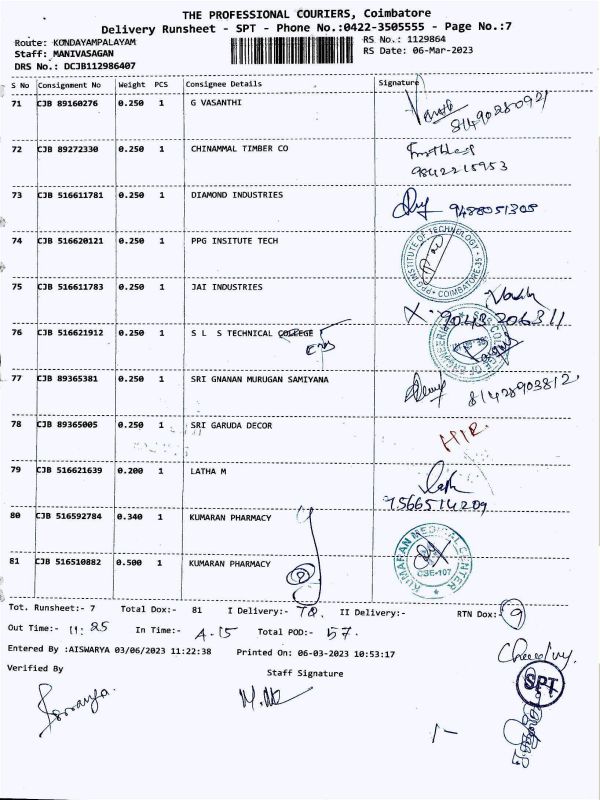 THE PROFESSIONAL COURIERS, Coimbatore
Delivery Runsheet - SPT - Phone No.:0422-3505555 - Page No.:7
Route: KONDAYAMPALAYAM RS No.: 1129864
Staff: MANIVASAGAN RS Date: 06-Mar-2023
DRS No.: DCJB112986407
S No Consignment No Weight PCS Consignee Details Signature
71 CJB 89160276 0.250 1 G VASANTHI
8149028092
72 CJB 89272330 0.250 1 CHINAMMAL TIMBER CO
9842215953
73 CJB 516611781 0.250 1 DIAMOND INDUSTRIES
9488051308
74 CJB 516620121 0.250 1 PPG INSITUTE TECH
PPG INSTITUTE OF TECHNOLOGY COIMBATORE-35
75 CJB 516611783 0.250 1 JAI INDUSTRIES
9043206311
76 CJB 516621912 0.250 1 S L S TECHNICAL COLLEGE
77 CJB 89365381 0.250 1 SRI GNANAN MURUGAN SAMIYANA
81428903812
78 CJB 89365005 0.250 1 SRI GARUDA DECOR
79 CJB 516621639 0.200 1 LATHA M
7566514209
80 CJB 516592784 0.340 1 KUMARAN PHARMACY
KUMARAN MEDICAL CENTER
CBE-107
81 CJB 516510882 0.500 1 KUMARAN PHARMACY
2
Tot. Runsheet:- 7 Total Dox:- 81 I Delivery:- 72 II Delivery:- RTN Dox:- 9
Out Time:- 11.25 In Time:- 4.15 Total POD:- 57.
Entered By :AISWARYA 03/06/2023 11:22:38 Printed On: 06-03-2023 10:53:17
Verified By Staff Signature
SPT